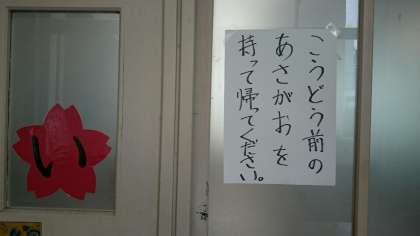 こうどう前の
あさがおを
持って帰ってください。
い